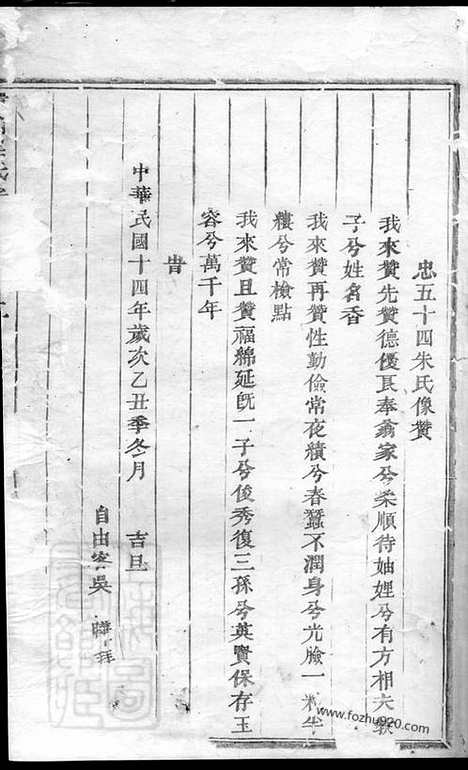 忠五十四朱氏像贊
我來贊先贊德優艮奉翁家兮柔順待妯娌兮有方相夫教
子兮姓名香
我來贊再贊性勤儉常夜績兮春蠶不潤身兮光臉一粒半
縷兮常檢點
我來贊且贊福綿延既一子兮俊秀復三孫兮英賢保存玉
容兮萬千年
旹
中華民國十四年歲次乙丑季冬月 吉旦
自由客吳 拜
www.fozhu920.com